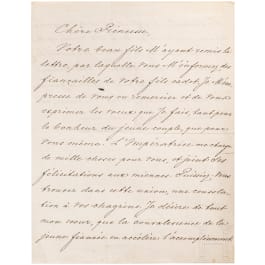 Chère Princesse,
Votre beau fils M'ayant remis la
lettre, par laquelle vous M'informez des
fiançailles de votre fils cadet, Je M'em-
presse de vous en remercier et de vous
exprimer les vœux que Je fais, tant pour
le bonheur du jeune couple, que pour
vous même. L'Impératrice me charge
de mille choses pour vous, et joint Ses
félicitations aux miennes. Puissiez-vous
trouver dans cette union, une consola-
tion à vos chagrins. Je désire de tout
mon cœur, que la convalescence de la
jeune fiancée en accélère l'accomplissement